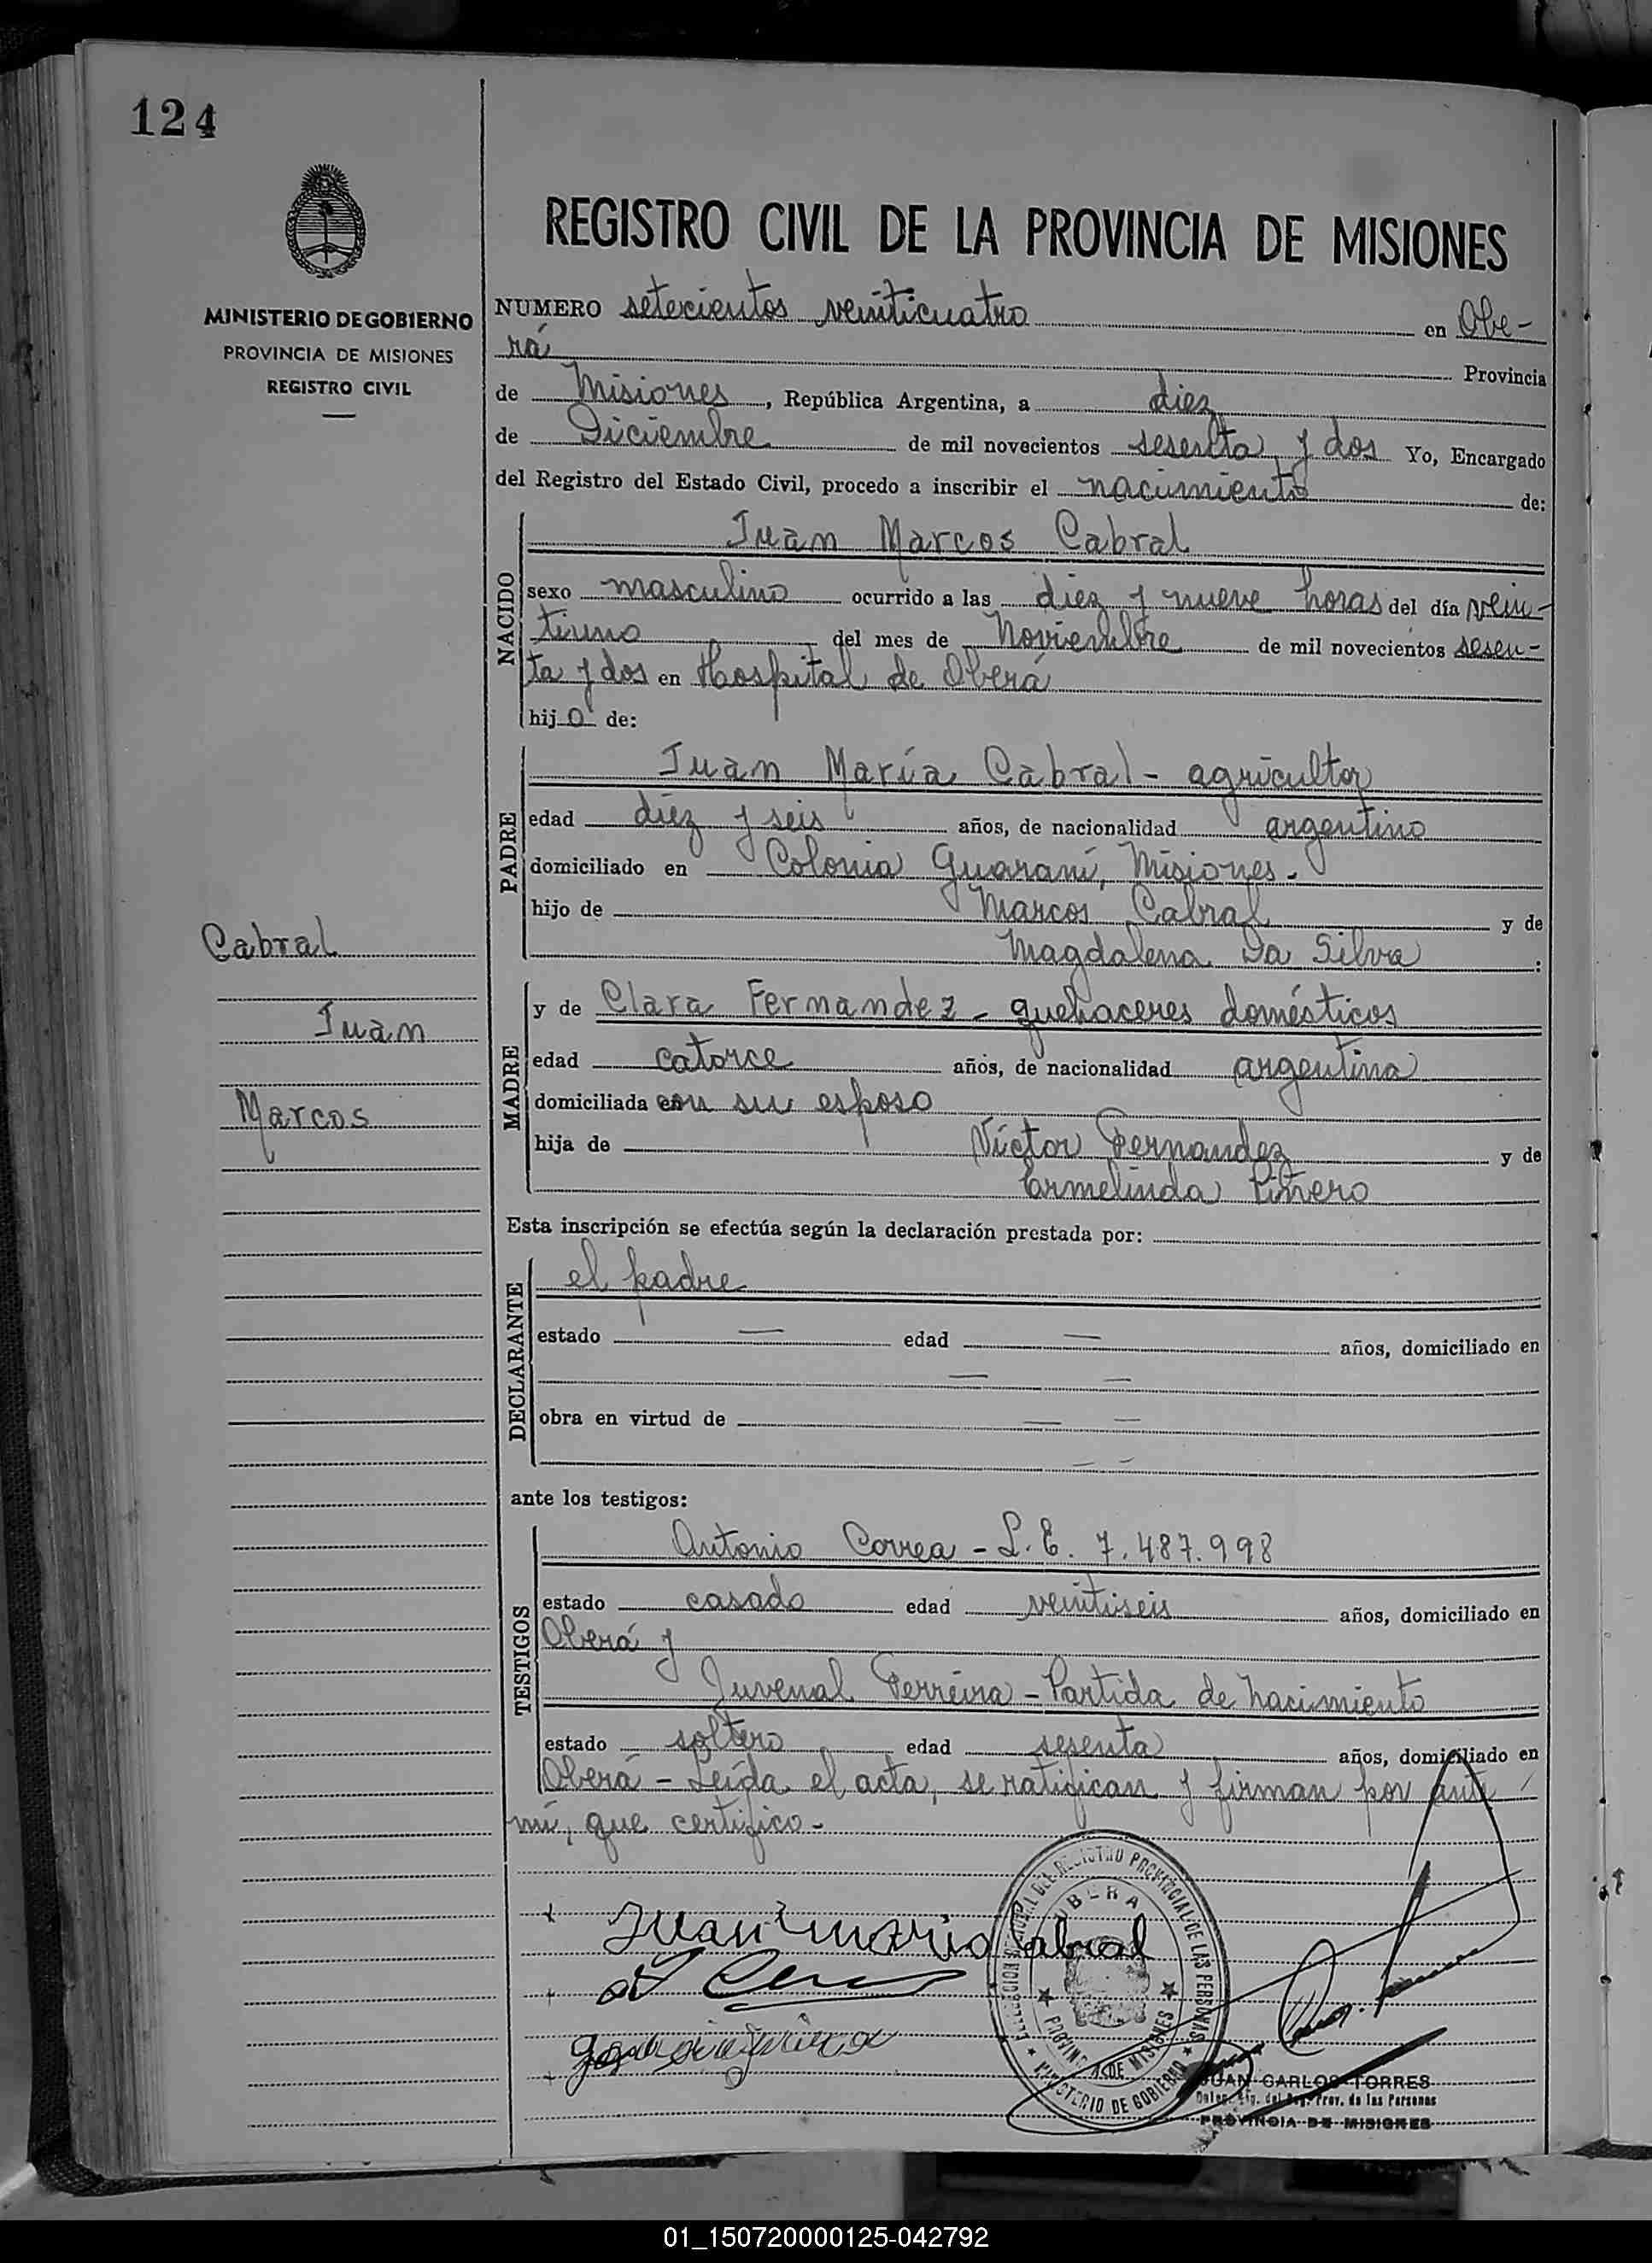 124
MINISTERIO DE GOBIERNO
PROVINCIA DE MISIONES
REGISTRO CIVIL
Cabral
Juan
Marcos
REGISTRO CIVIL DE LA PROVINCIA DE MISIONES
NUMERO setecientos veinticuatro en Obe-
rá Provincia
de Misiones, República Argentina, a diez
de Diciembre de mil novecientos sesenta y dos Yo, Encargado
del Registro del Estado Civil, procedo a inscribir el nacimiento de:
NACIDO
Juan Marcos Cabral
sexo masculino ocurrido a las diez y nueve horas del día vein-
tiuno del mes de Noviembre de mil novecientos sesen-
ta y dos en Hospital de Oberá
hijo de:
PADRE
Juan María Cabral - agricultor
edad diez y seis años, de nacionalidad argentino
domiciliado en Colonia Guaraní, Misiones.
hijo de Marcos Cabral y de
Magdalena Da Silva :
MADRE
y de Clara Fernandez - quehaceres domésticos
edad catorce años, de nacionalidad argentina
domiciliada con su esposo
hija de Víctor Fernandez y de
Ermelinda Piñero
Esta inscripción se efectúa según la declaración prestada por:
DECLARANTE
el padre
estado — edad — años, domiciliado en
— —
obra en virtud de — —
— —
ante los testigos:
TESTIGOS
Antonio Correa - L.E. 7.487.998
estado casado edad veintiseis años, domiciliado en
Oberá y
Juvenal Ferreira - Partida de nacimiento
estado soltero edad sesenta años, domiciliado en
Oberá - Leída el acta, se ratifican y firman por ante
mí, que certifico.-
Juan Maria Cabral
OBERA
PROVINCIA DE MISIONES
MINISTERIO DE GOBIERNO
DEL REGISTRO PROVINCIAL DE LAS PERSONAS
JUAN CARLOS TORRES
Prov. de las Personas
PROVINCIA DE MISIONES
01_150720000125-042792